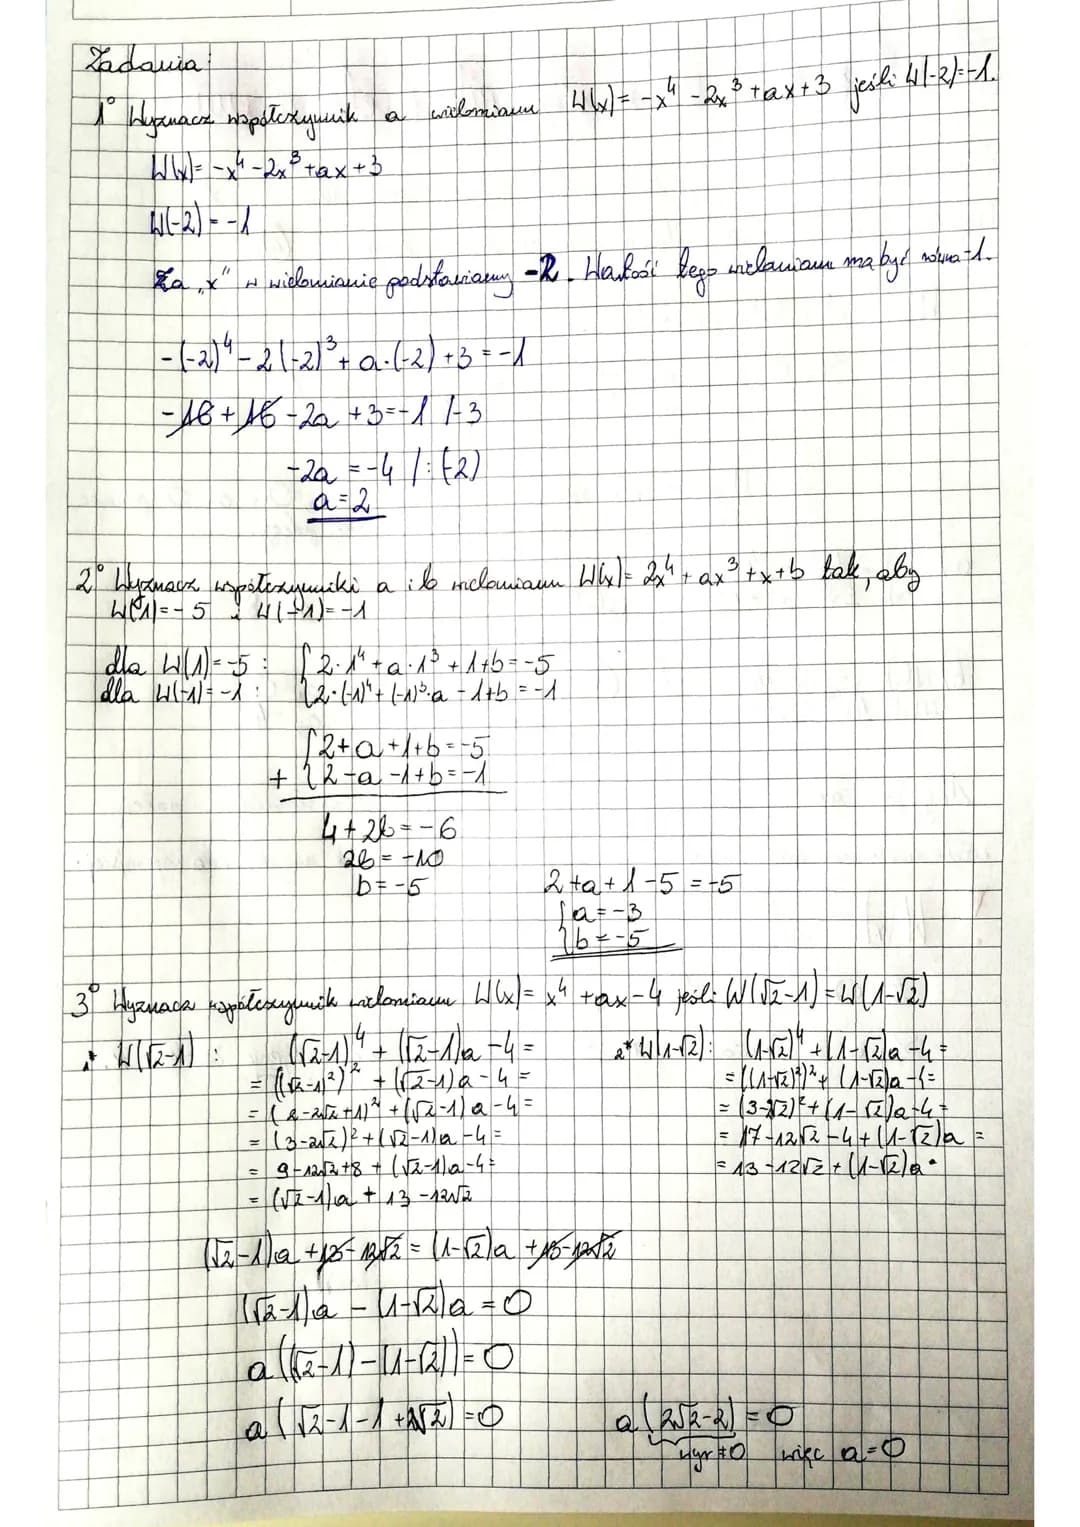 Zadania:
1° Wyznacz współczynnik a wielomianu W(x)= -x⁴ -2x³ +ax+3 jeśli W(-2)=-1.
W(x)= -x⁴ -2x³ +ax+3
W(-2) = -1
Za „x" w wielomianie podstawiamy -2. Wartość tego wielomianu ma być równa -1.
-(-2)⁴ -2(-2)³ + a·(-2) +3 = -1
-16 + 16 -2a +3=-1 /-3
-2a = -4 /:(-2)
a=2
2° Wyznacz współczynniki a i b wielomianu W(x)= 2x⁴ + ax³ +x+b tak, aby
W(1)=-5 i W(-1)=-1
dla W(1)=-5 : { 2·1⁴ +a·1³ +1+b=-5
dla W(-1)=-1 : { 2·(-1)⁴ + (-1)³·a -1+b = -1
{ 2+a+1+b=-5
+ { 2-a-1+b=-1
4+2b=-6
2b=-10
b=-5
2+a+1-5 = -5
{ a=-3
{ b=-5
3° Wyznacz współczynnik wielomianu W(x)= x⁴ +ax-4 jeśli W(√2-1)=W(1-√2)
W(√2-1) : (√2-1)⁴ + (√2-1)a -4=
= ((√2-1)²)² + (√2-1)a -4=
= (2-2√2+1)² +(√2-1)a-4=
= (3-2√2)²+(√2-1)a-4=
= 9-12√2+8 + (√2-1)a-4=
= (√2-1)a + 13 -12√2
2* W(1-√2): (1-√2)⁴ +(1-√2)a-4=
= ((1-√2)²)²+ (1-√2)a-4=
= (3-2√2)²+(1-√2)a-4=
= 17-12√2 -4+(1-√2)a =
= 13-12√2 + (1-√2)a
(√2-1)a +13-12√2 = (1-√2)a +13-12√2
(√2-1)a - (1-√2)a = 0
a((√2-1)-(1-√2))=0
a(√2-1-1+√2)=0
a(2√2-2)=0
wyr ≠0 więc a=0